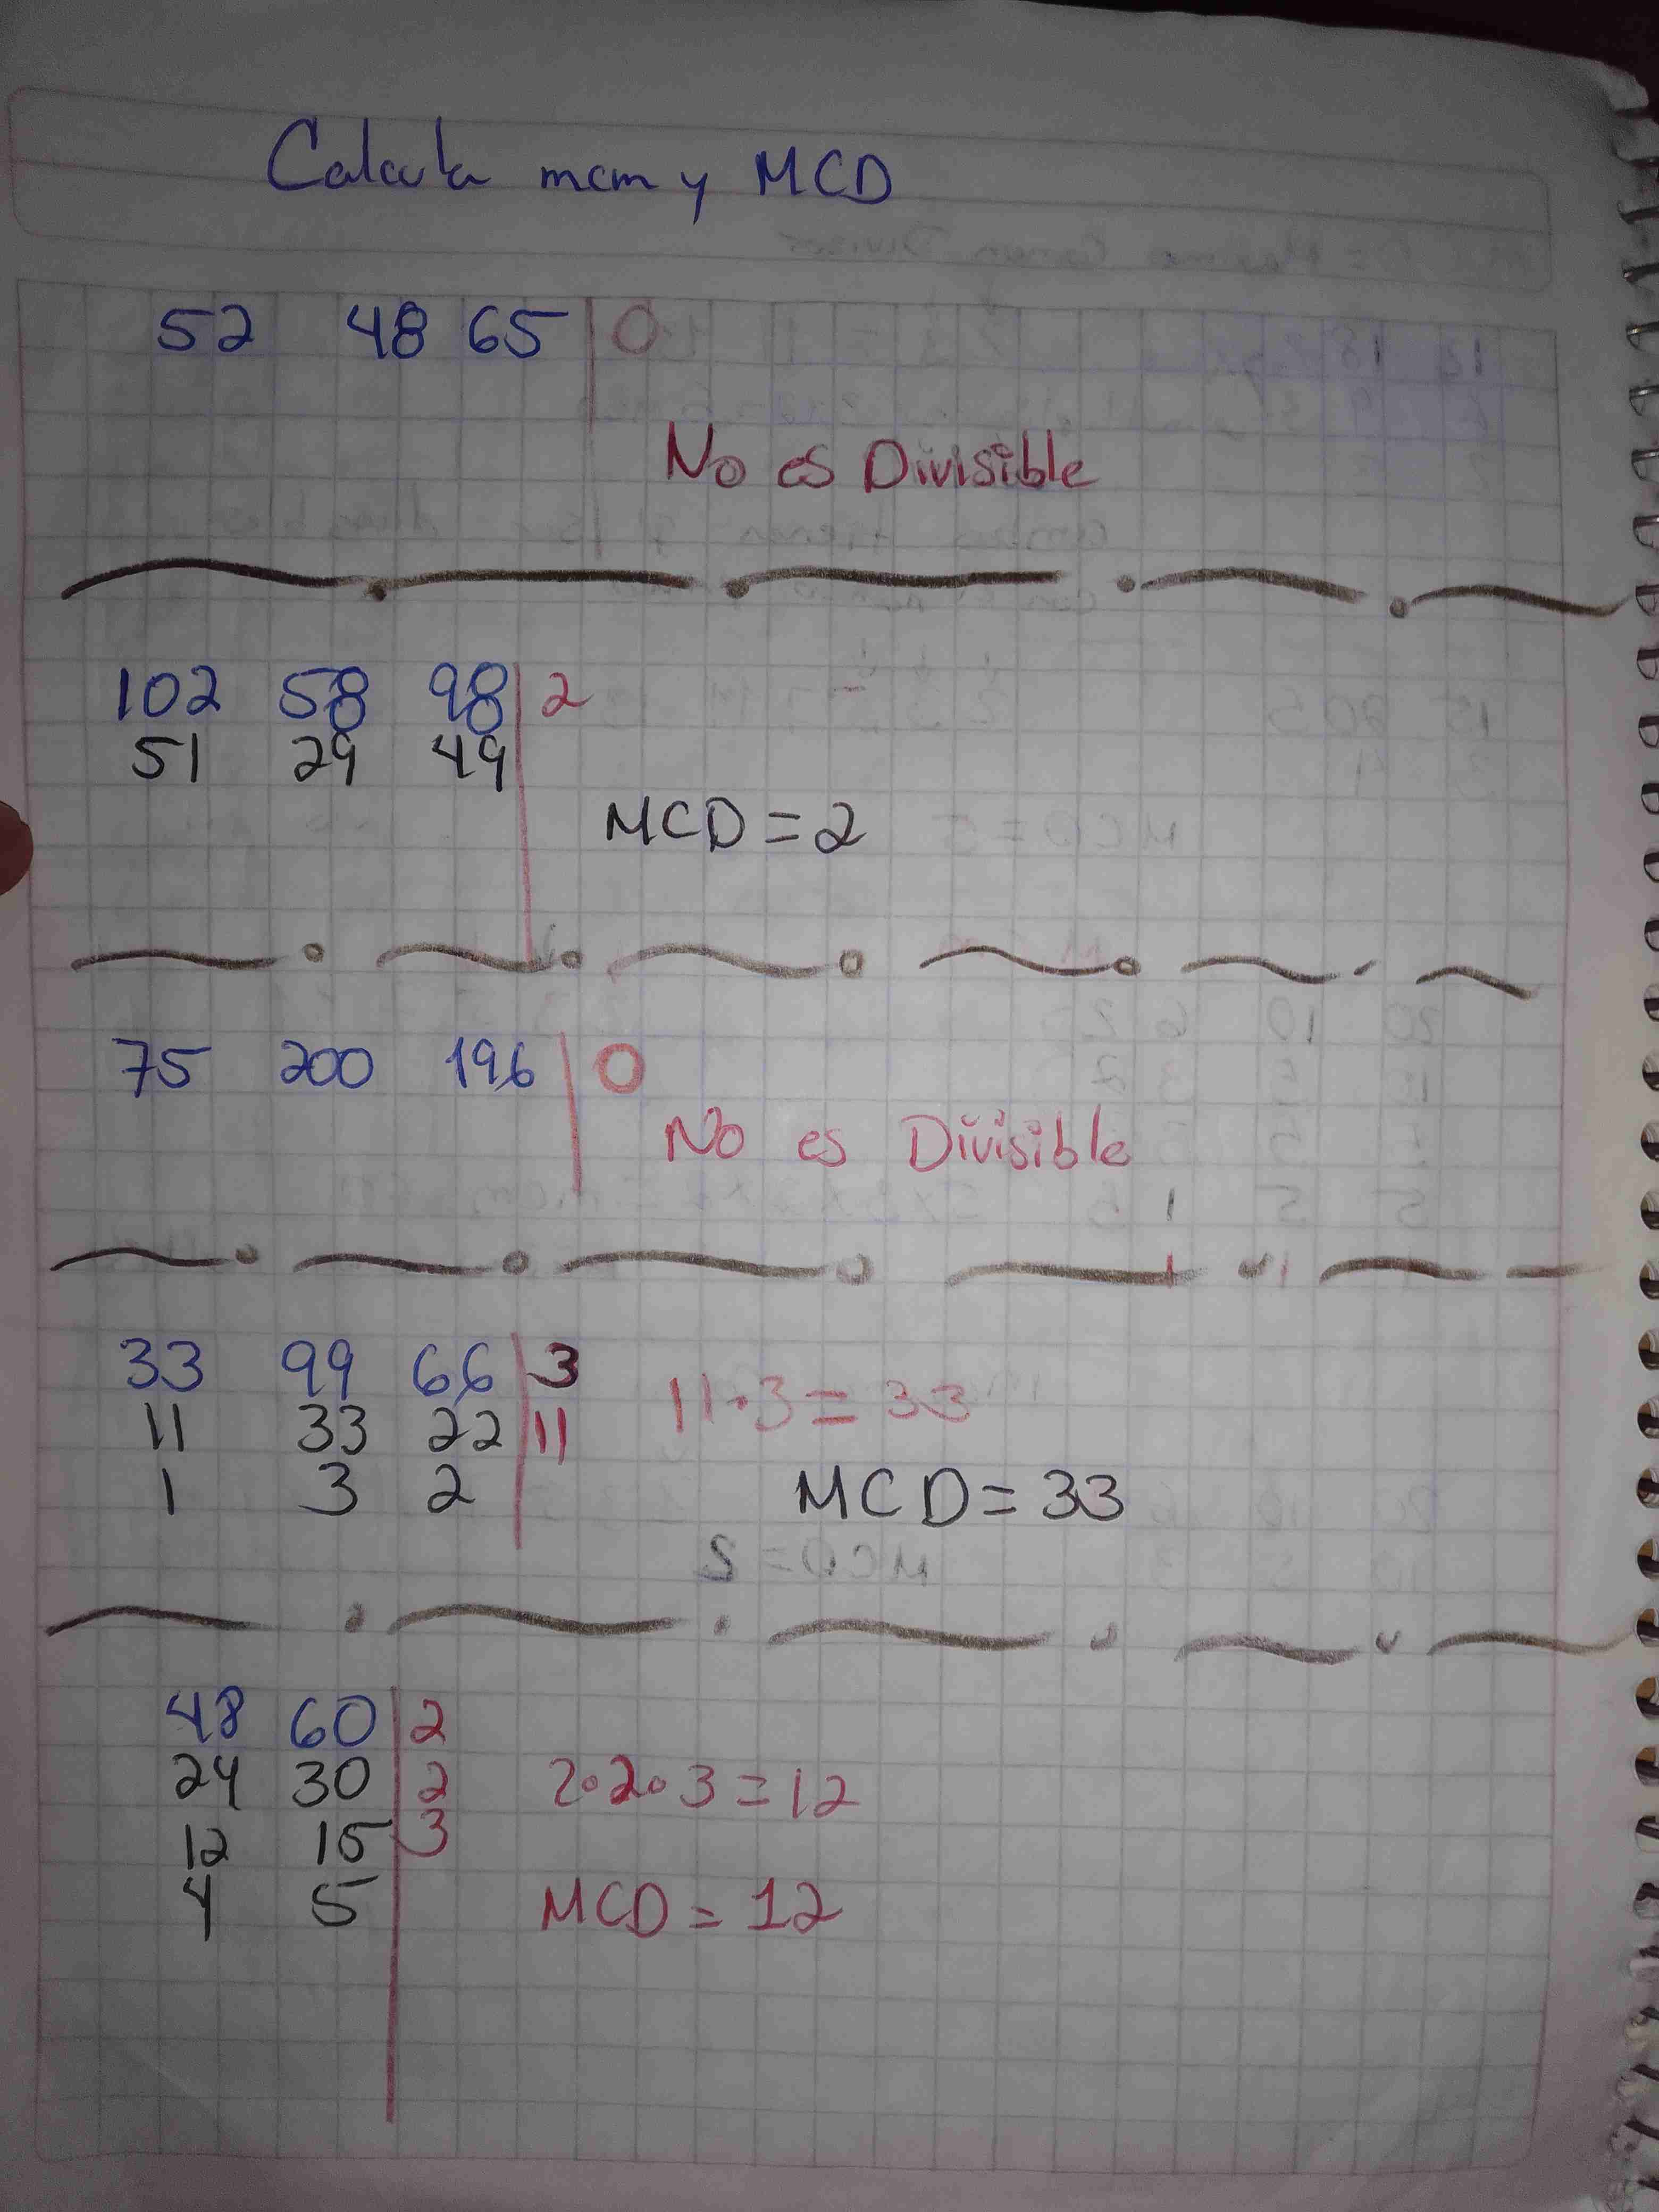 Calcula mcm y MCD
52 48 65 | 0
No es Divisible
102 58 98 | 2
51 29 49
MCD = 2
75 200 196 | 0
No es Divisible
33 99 66 | 3
11 33 22 | 11
1 3 2
11·3 = 33
MCD = 33
48 60 | 2
24 30 | 2
12 15 | 3
4 5
2·2·3 = 12
MCD = 12